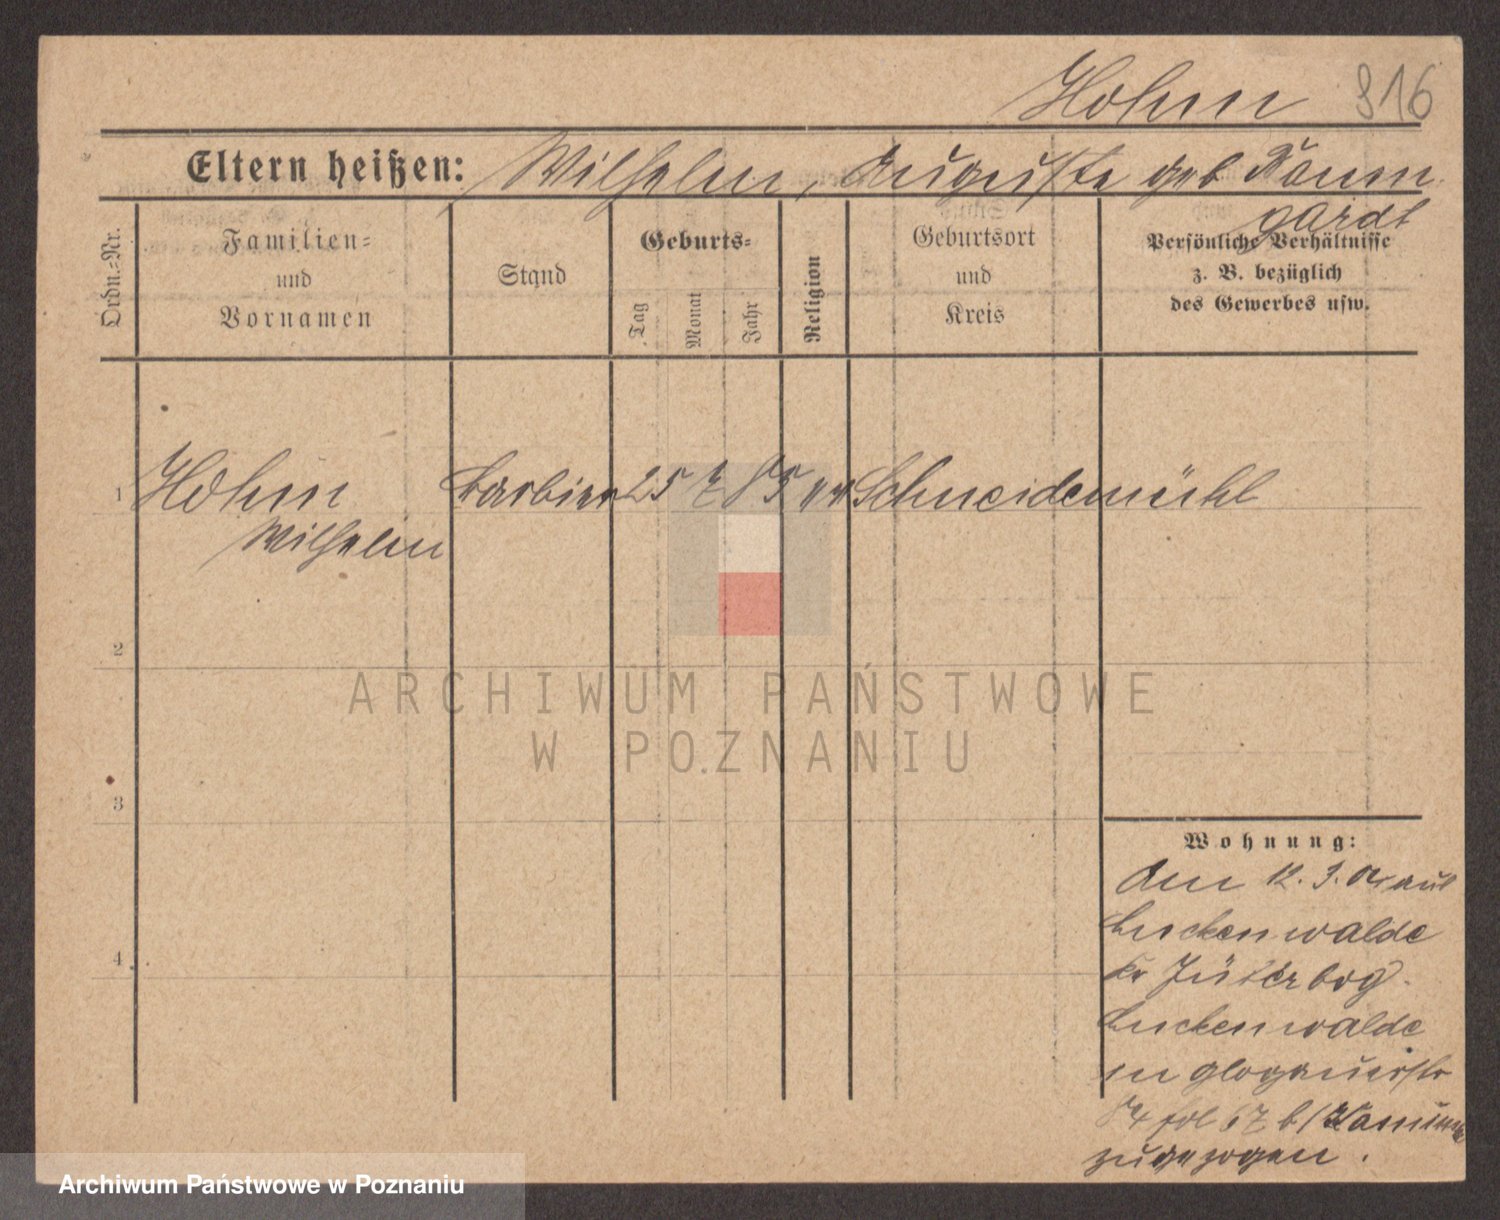 Hohm 816
Eltern heißen: Wilhelm, Auguste geb Baum
gardt
Ordn.=Nr.
Familien=
und
Vornamen
Stand
Geburts=
Tag
Monat
Jahr
Religion
Geburtsort
und
Kreis
Persönliche Verhältnisse
z. B. bezüglich
des Gewerbes usw.
1 Hohm Barbier 25 7 85 ev Schneidemühl
Wilhelm
2
3
4
Wohnung:
Am 12. 3. 04 aus
Luckenwalde
Kr Jüterbog.
Luckenwalde
in Glogauerstr
84 67 b/
zugezogen.
ARCHIWUM PAŃSTWOWE
W POZNANIU
Archiwum Państwowe w Poznaniu